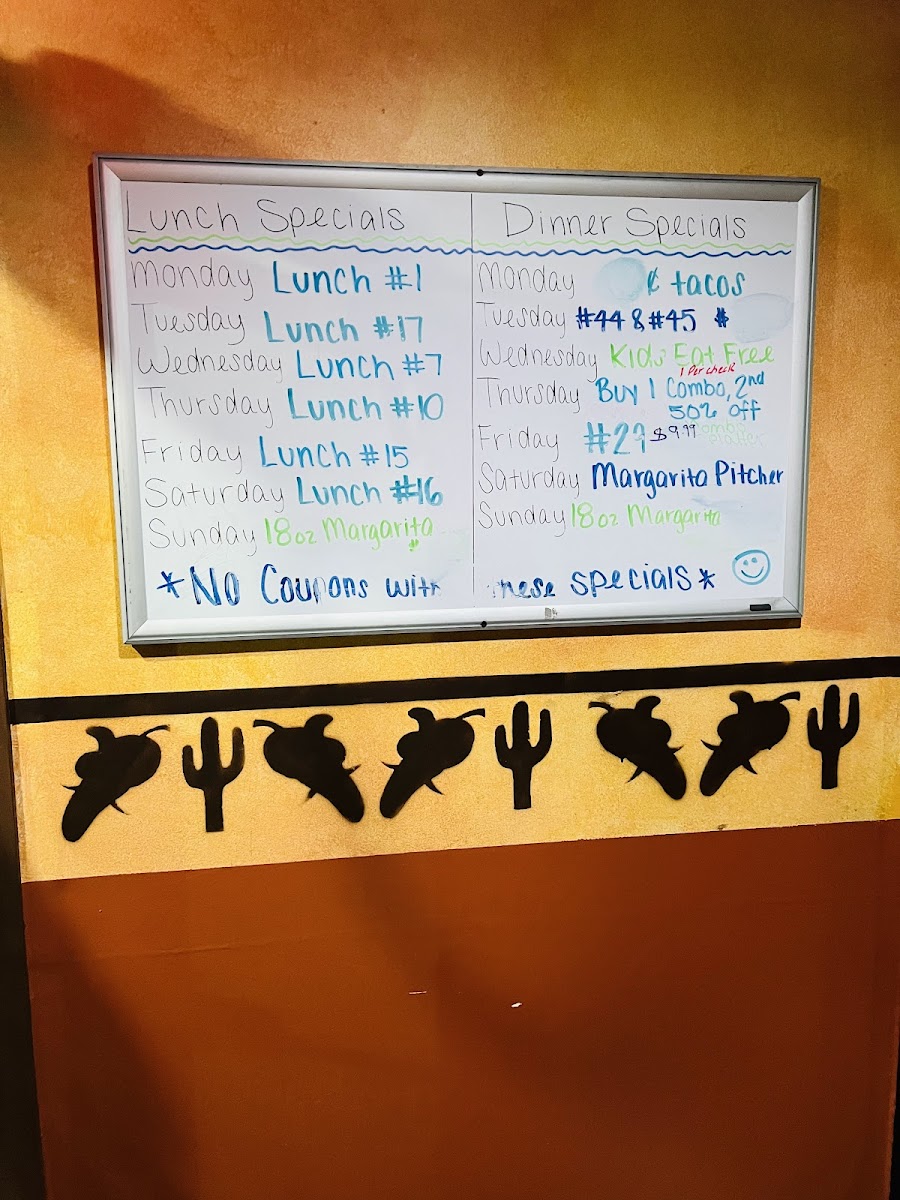 Lunch Specials
Monday Lunch #1
Tuesday Lunch #17
Wednesday Lunch #7
Thursday Lunch #10
Friday Lunch #15
Saturday Lunch #16
Sunday 18oz Margarita
Dinner Specials
Monday ¢ tacos
Tuesday #44 & #45 $
Wednesday Kids Eat Free
1 Per check
Thursday Buy 1 Combo, 2nd
50% off
Friday $9.99
Saturday Margarita Pitcher
Sunday 18oz Margarita
*No Coupons with these specials*